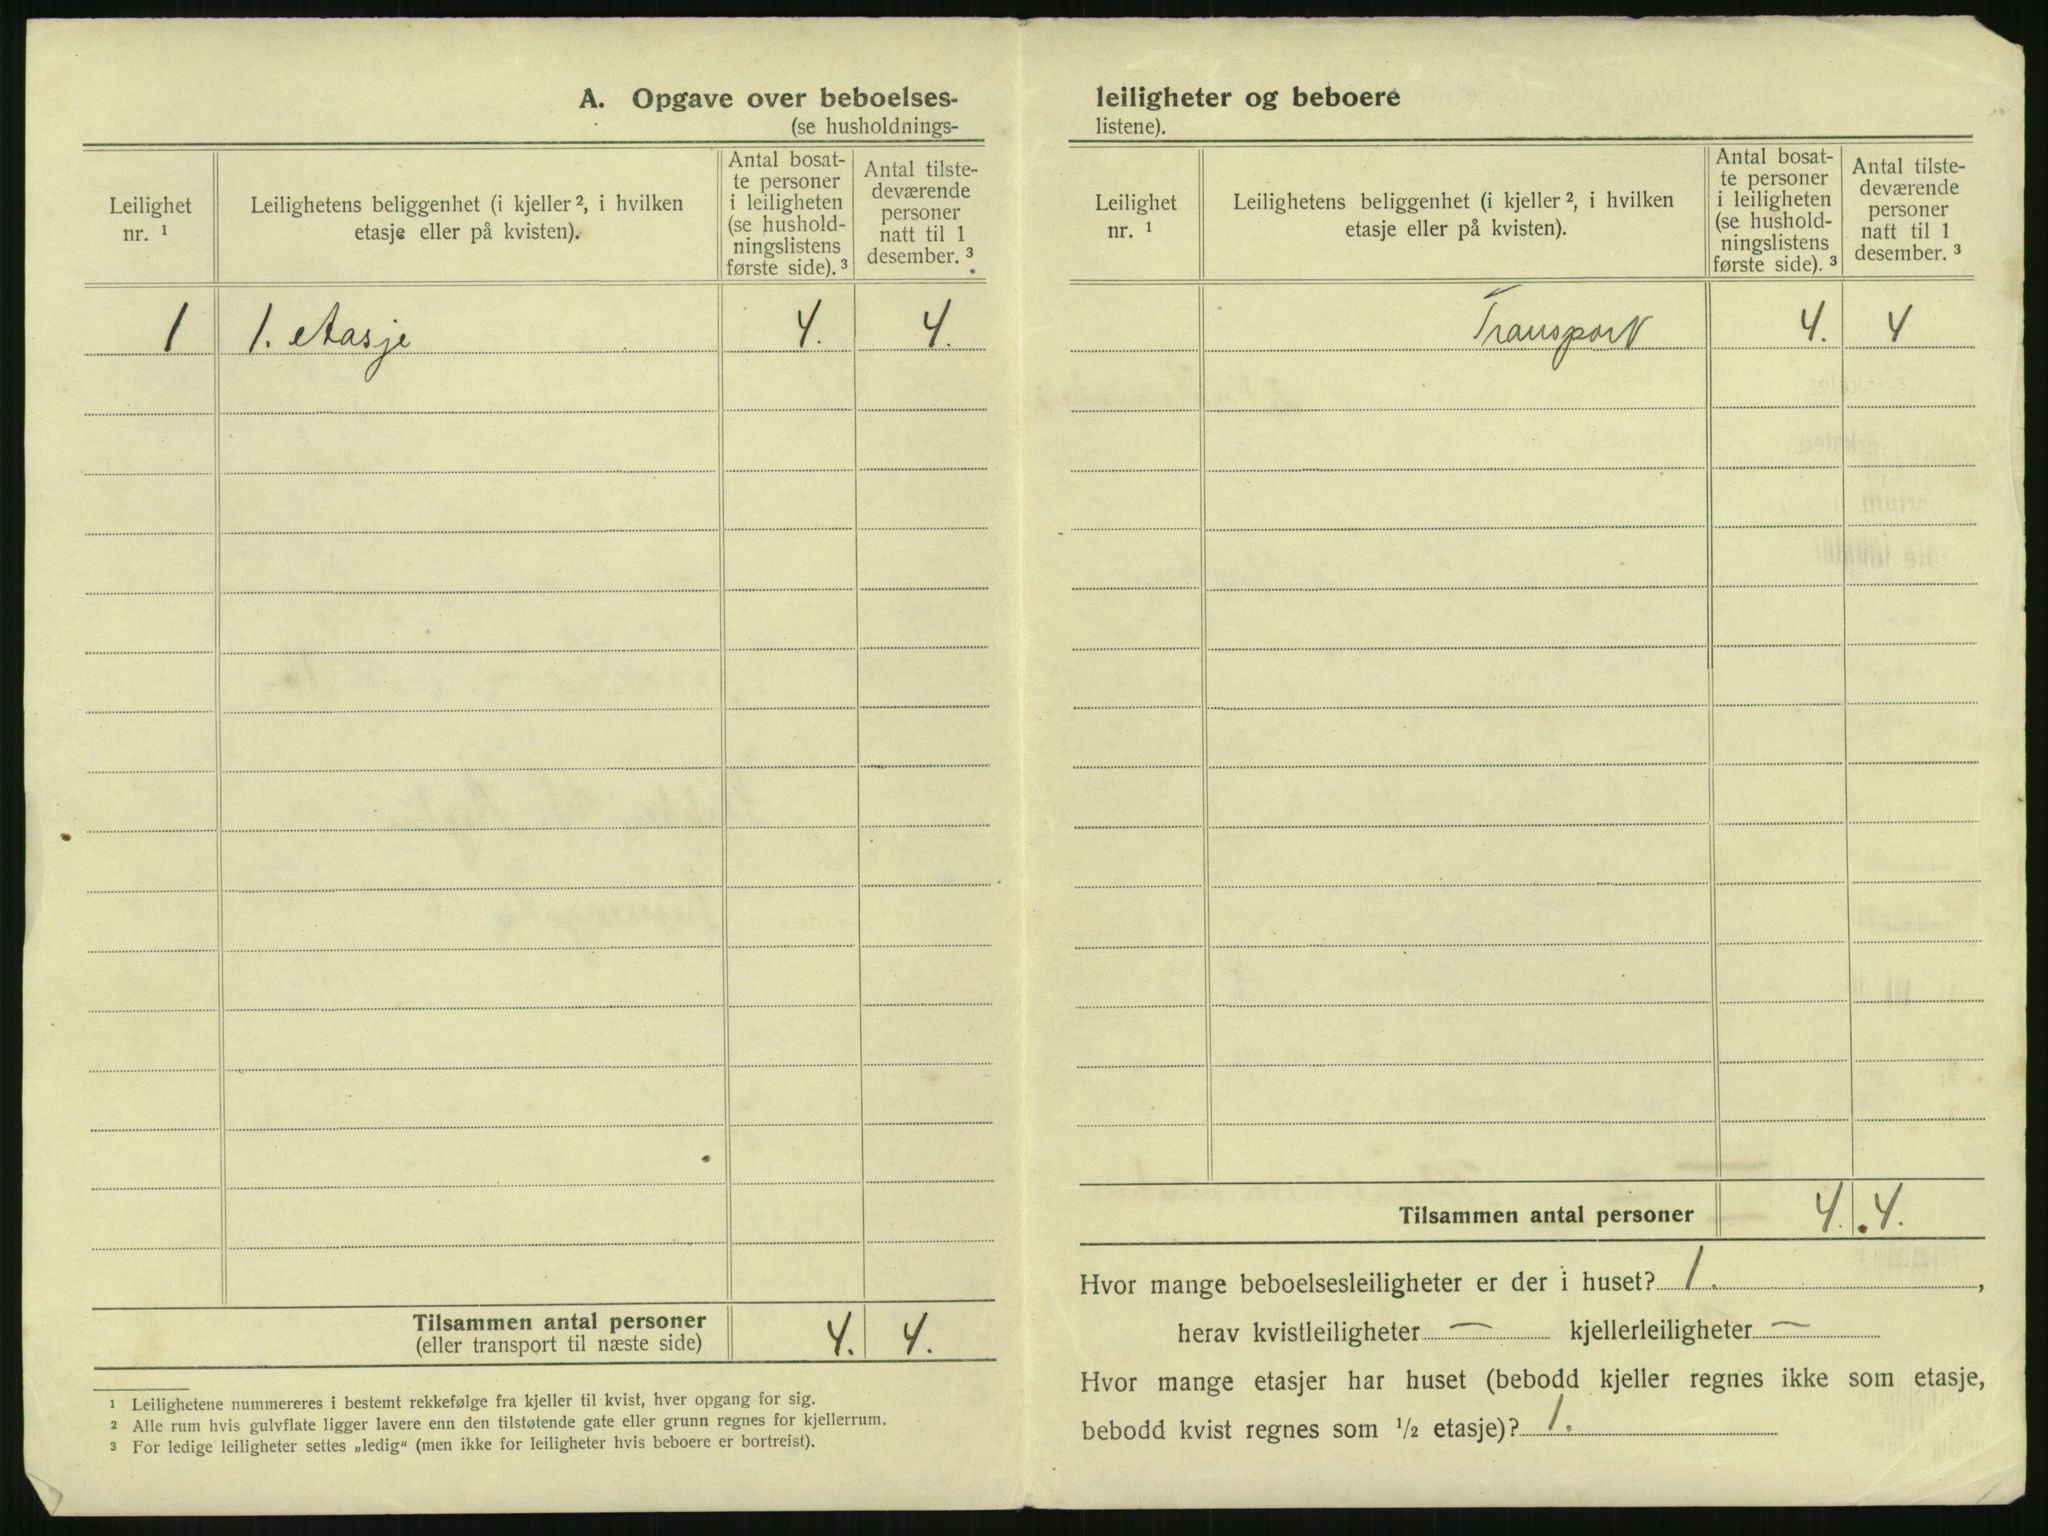 A. Opgave over beboelses-
(se husholdnings-
Leilighet
nr. ¹
Leilighetens beliggenhet (i kjeller ², i hvilken
etasje eller på kvisten).
Antal bosat-
te personer
i leiligheten
(se hushold-
ningslistens
første side). ³
Antal tilste-
deværende
personer
natt til 1
desember. ³
1 1. etasje 4. 4.
Tilsammen antal personer 4. 4.
(eller transport til næste side)
¹ Leilighetene nummereres i bestemt rekkefølge fra kjeller til kvist, hver opgang for sig.
² Alle rum hvis gulvflate ligger lavere enn den tilstøtende gate eller grunn regnes for kjellerrum.
³ For ledige leiligheter settes „ledig“ (men ikke for leiligheter hvis beboere er bortreist).
leiligheter og beboere
listene).
Leilighet
nr. ¹
Leilighetens beliggenhet (i kjeller ², i hvilken
etasje eller på kvisten).
Antal bosat-
te personer
i leiligheten
(se hushold-
ningslistens
første side). ³
Antal tilste-
deværende
personer
natt til 1
desember. ³
Transport 4. 4
Tilsammen antal personer 4. 4.
Hvor mange beboelsesleiligheter er der i huset? 1. ,
herav kvistleiligheter — kjellerleiligheter —
Hvor mange etasjer har huset (bebodd kjeller regnes ikke som etasje,
bebodd kvist regnes som ½ etasje)? 1.